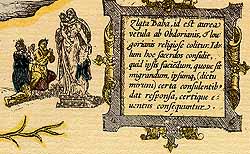 Zlata Baba, id est aurea
vetula ab Obdorianis, & Iou
gorianis religiose colitur. Ido
lum hoc sacerdos consulit,
quid ipsis faciēdum, quoue sit
migrandum, ipsumq; (dictu
mirum) certa consulentib⁹
dat responsa, certique e
uentus consequuntur.